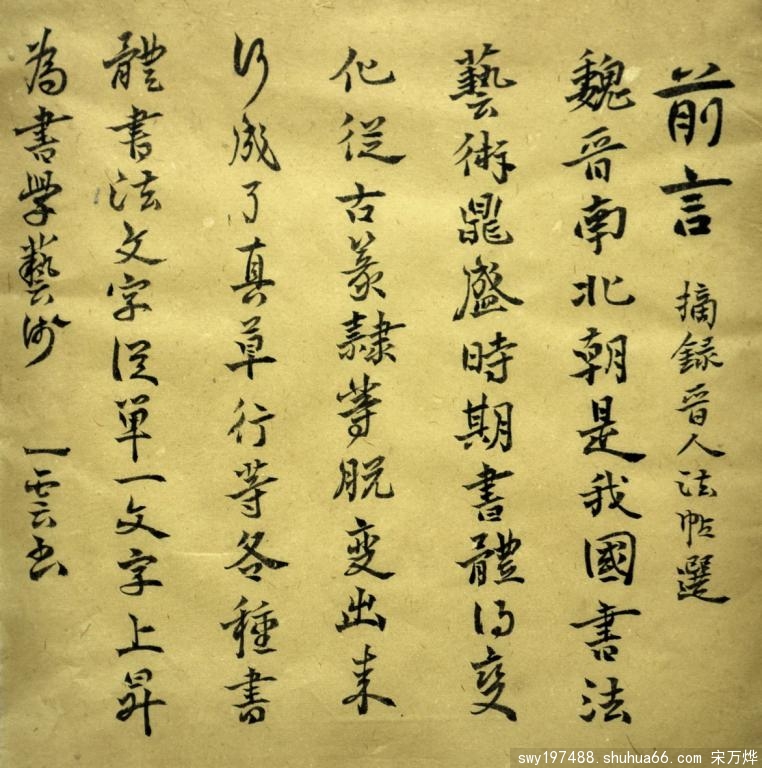 前言 摘録晋人法帖選
魏晋南北朝是我國書法
藝術鼎盛時期書體的變
化從古篆隸等脱變出来
形成了真草行等各種書
體書法文字從單一文字上昇
為書學藝術 一雲书
swy197488.shuhua66.com 宋万烨